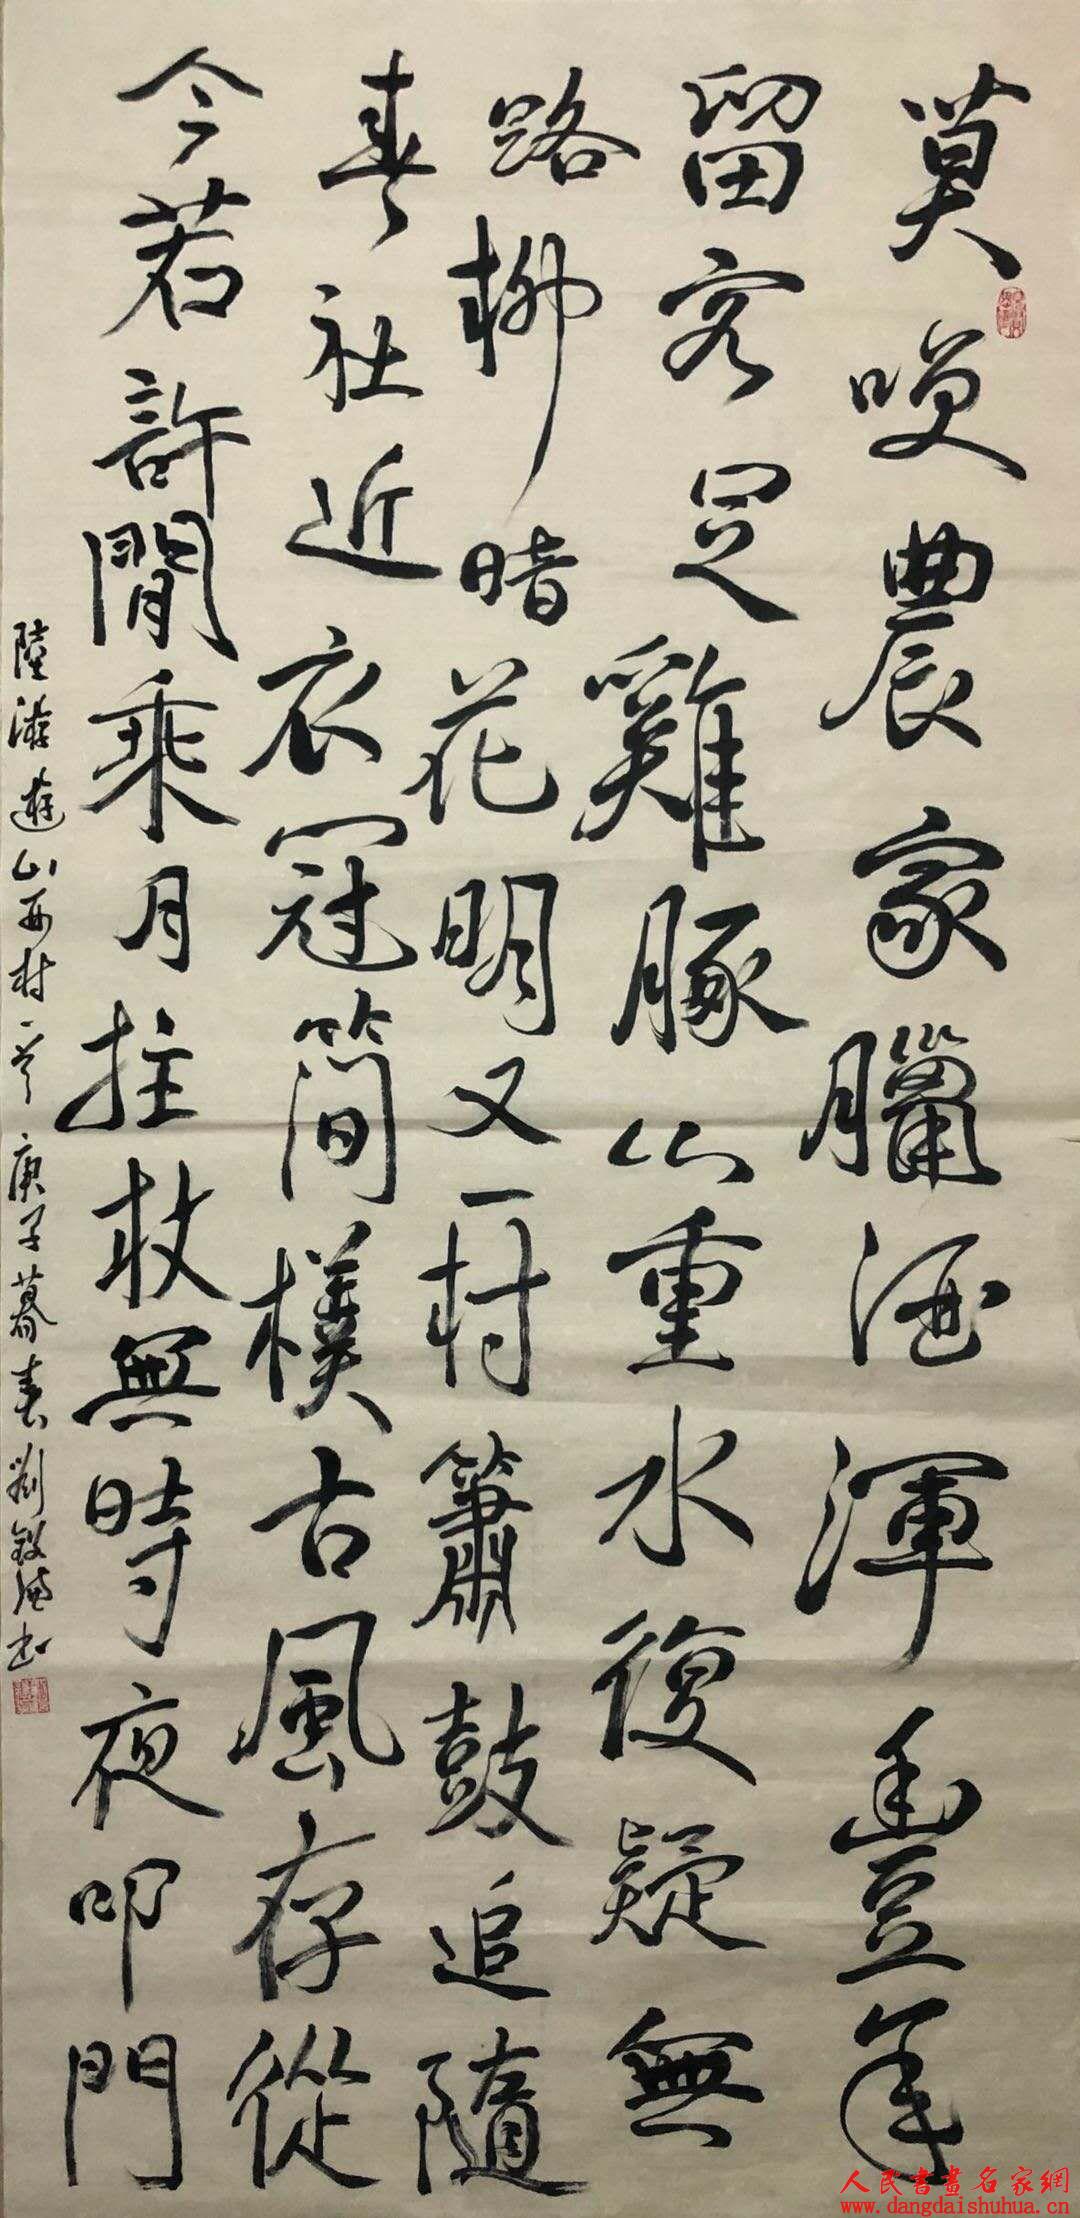 莫咲農家臘酒渾豐年
留客足雞豚山重水復疑無
路柳暗花明又一村簫鼓追隨
春社近衣冠簡樸古風存從
今若許閒乘月拄杖無時夜叩門
陸游遊山西村一首 庚子暮春劉書
人民書畫名家網
www.dangdaishuhua.cn